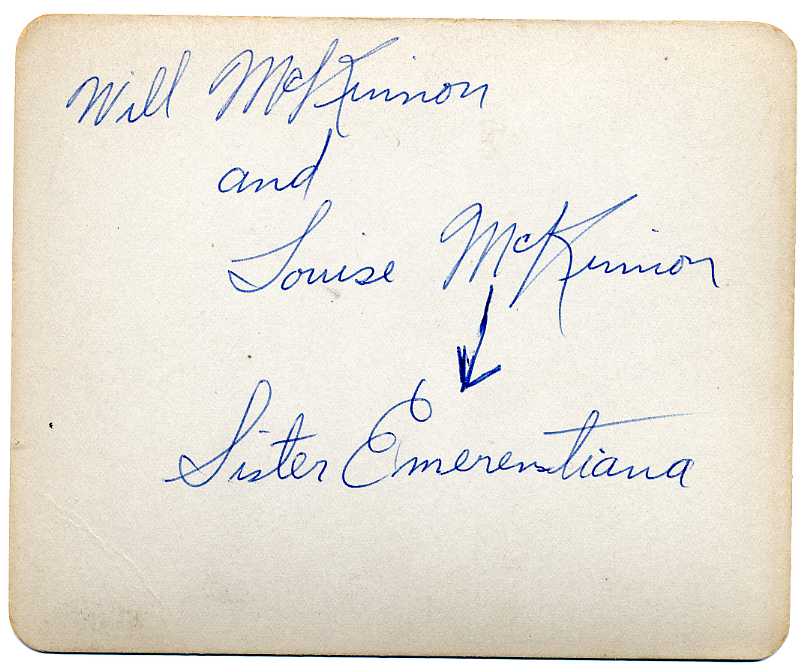 Will McKinnon
and
Louise McKinnon
Sister Emerentiana